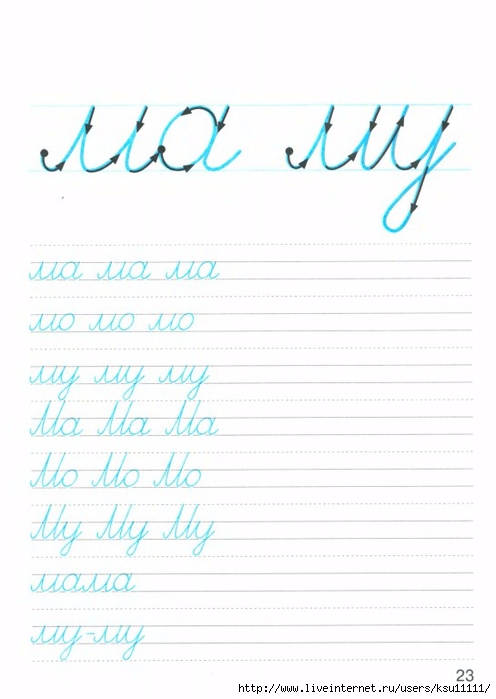 ма му
ма ма ма
мо мо мо
му му му
Ма Ма Ма
Мо Мо Мо
Му Му Му
мама
му-му
23
http://www.liveinternet.ru/users/ksu11111/